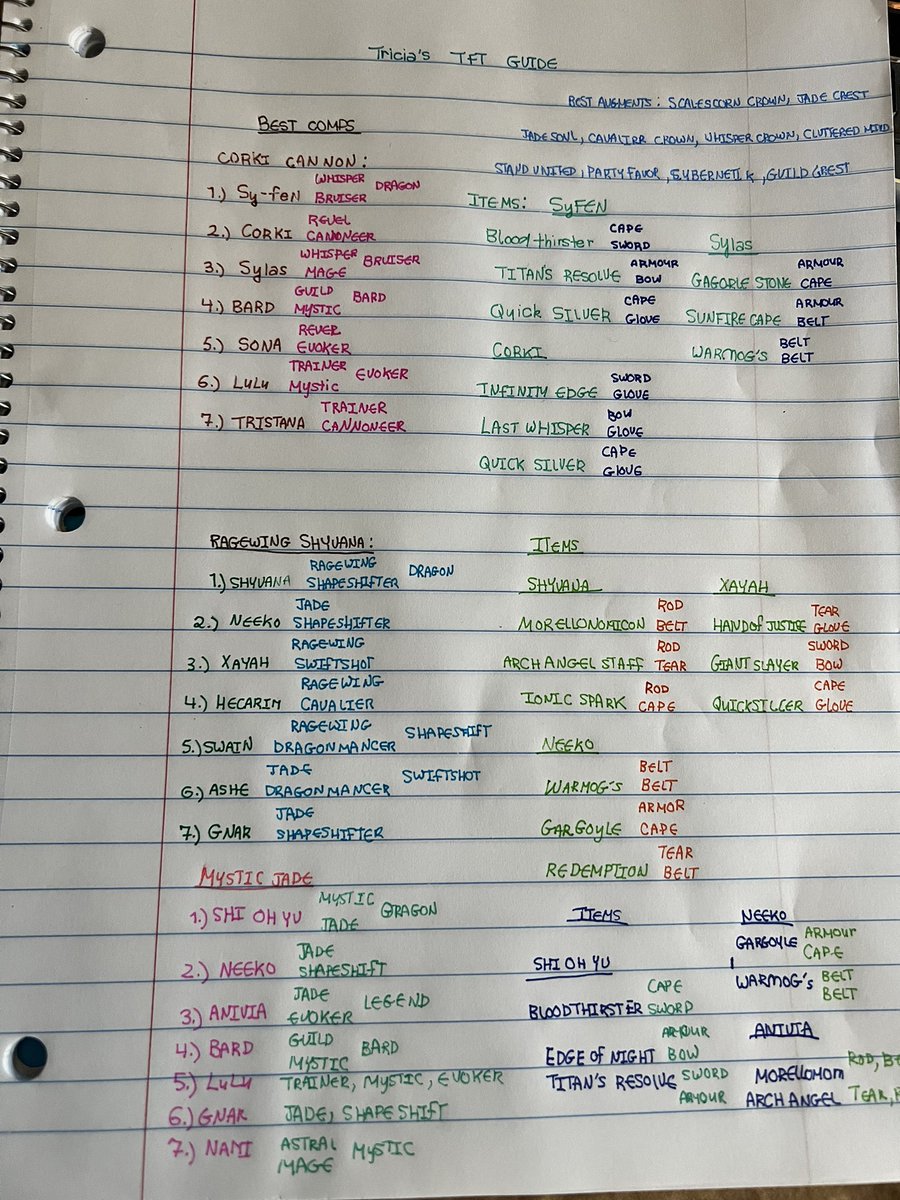 Tricia's TFT GUIDE
BEST AUGMENTS: SCALESCORN CROWN, JADE CREST
JADE SOUL, CAVALIER CROWN, WHISPER CROWN, CLUTTERED MIND
STAND UNITED, PARTY FAVOR, SYBERNETIK, GUILD CREST
BEST COMPS
CORKI CANNON:
1.) Sy-feN WHISPER DRAGON
BRUISER
2.) CORKI REVEL
CANONEER
3.) Sylas WHISPER BRUISER
MAGE
4.) BARD GUILD BARD
MYSTIC
5.) SONA REVER
EVOKER
6.) LULU TRAINER EVOKER
Mystic
7.) TRISTANA TRAINER
CANNONEER
ITEMS: SyFEN
Bloodthirster CAPE
SWORD
TITAN'S RESOLVE ARMOUR
BOW
Quick SILVER CAPE
Glove
CORKI
INFINITY EDGE SWORD
GLOVE
LAST WHISPER BOW
GLOVE
QUICK SILVER CAPE
Glove
Sylas
GAGORLE STONE ARMOUR
CAPE
SUNFIRE CAPE ARMOUR
BELT
WARMOG'S BELT
BELT
RAGEWING SHYVANA:
1.) SHYVANA RAGEWING DRAGON
SHAPESHIFTER
2.) NEEKO JADE
SHAPESHIFTER
3.) XAYAH RAGEWING
SWIFTSHOT
4.) HECARIM RAGEWING
CAVALIER
5.) SWAIN RAGEWING SHAPESHIFT
DRAGONMANCER
6.) ASHE JADE SWIFTSHOT
DRAGONMANCER
7.) GNAR JADE
SHAPESHIFTER
ITEMS
SHYVANA
MORELLONOMICON ROD
BELT
ARCHANGEL STAFF ROD
TEAR
IONIC SPARK ROD
CAPE
NEEKO
WARMOG'S BELT
BELT
GARGOYLE ARMOR
CAPE
REDEMPTION TEAR
BELT
XAYAH
HAND OF JUSTICE TEAR
GLOVE
GIANT SLAYER SWORD
BOW
QUICKSILCER CAPE
GLOVE
MYSTIC JADE
1.) SHI OH YU MYSTIC DRAGON
JADE
2.) NEEKO JADE
SHAPESHIFT
3.) ANIVIA JADE LEGEND
EVOKER
4.) BARD GUILD BARD
MYSTIC
5.) LULU TRAINER, MYSTIC, EVOKER
6.) GNAR JADE, SHAPESHIFT
7.) NAMI ASTRAL MYSTIC
MAGE
ITEMS
SHI OH YU
BLOODTHIRSTER CAPE
SWORD
EDGE OF NIGHT ARMOUR
BOW
TITAN'S RESOLVE SWORD
ARMOUR
NEEKO
GARGOYLE ARMOUR
CAPE
WARMOG'S BELT
BELT
ANIVIA
MORELLOMOM ROD,
ARCHANGEL TEAR,